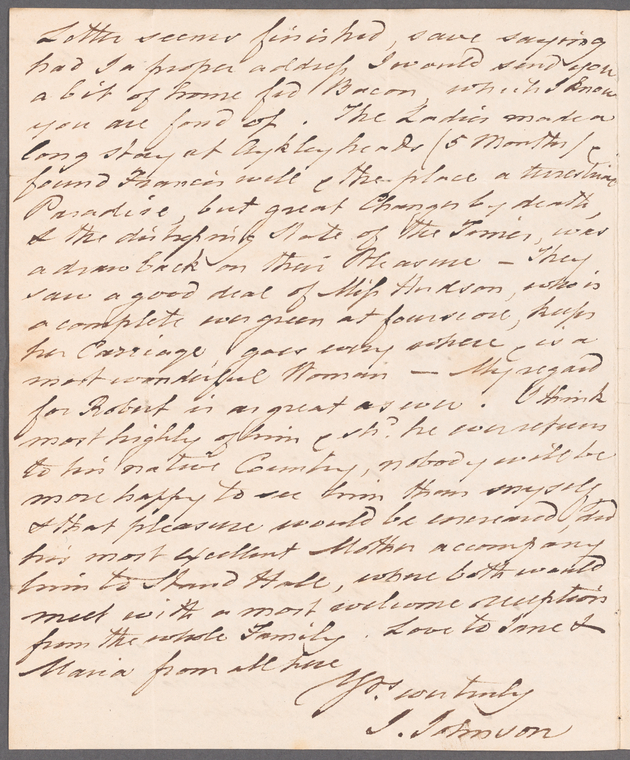 Letter seems finished, save saying
had I a proper address I would send you
a bit of home fed Bacon which I know
you are fond of. The Ladies made a
long stay at Aykley heads (5 Months) &
found Francis well & the place a terestrial
Paradise, but great Changes by death,
& the distressing State of the Times, was
a draw back on their Pleasure — They
saw a good deal of Miss Hudson, who is
a complete evergreen at fourscore, keeps
her Carriage, goes every where & is a
most wonderful Woman — My regard
for Robert is as great as ever. I think
most highly of him & shd. he ever return
to his native Country, nobody will be
more happy to see him than myself
& that pleasure would be encreased, did
his most excellent Mother accompany
him to Stand Hall, where both would
meet with a most welcome reception
from the whole Family. Love to Jane &
Maria from all here
Yrs. ever truly
J. Johnson